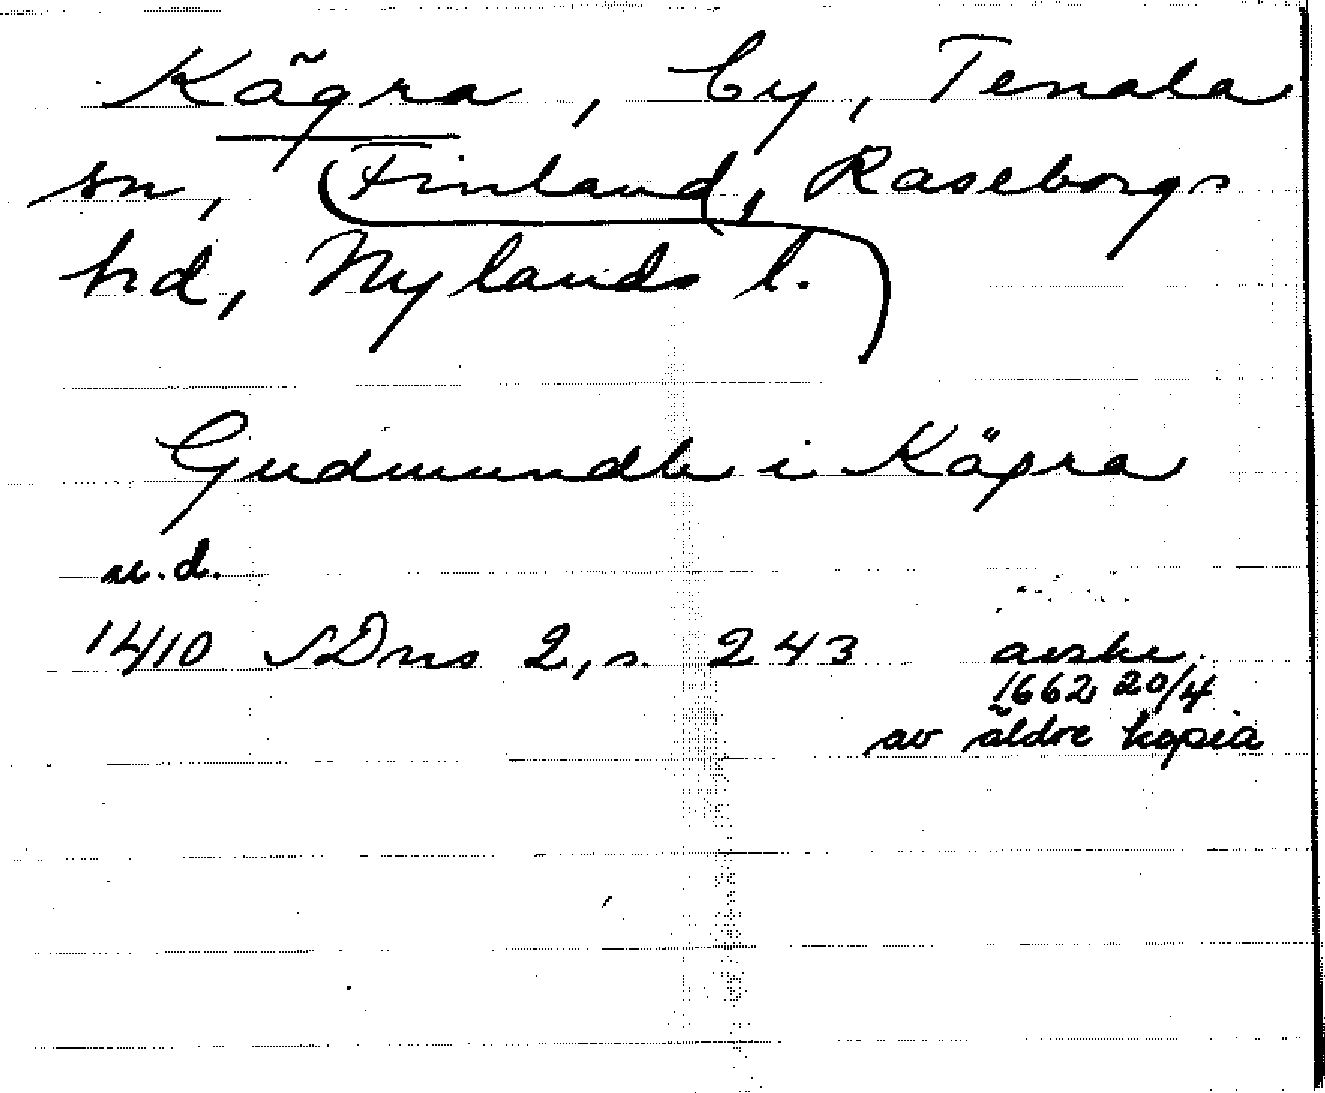 Kägra, by, Tenala
sn, Finland, Raseborgs
hd, Nylands l.
Gudmundh i Käpra
u.d.
1410 SDns 2, s. 243 avskr.
1662 20/4
av äldre kopia